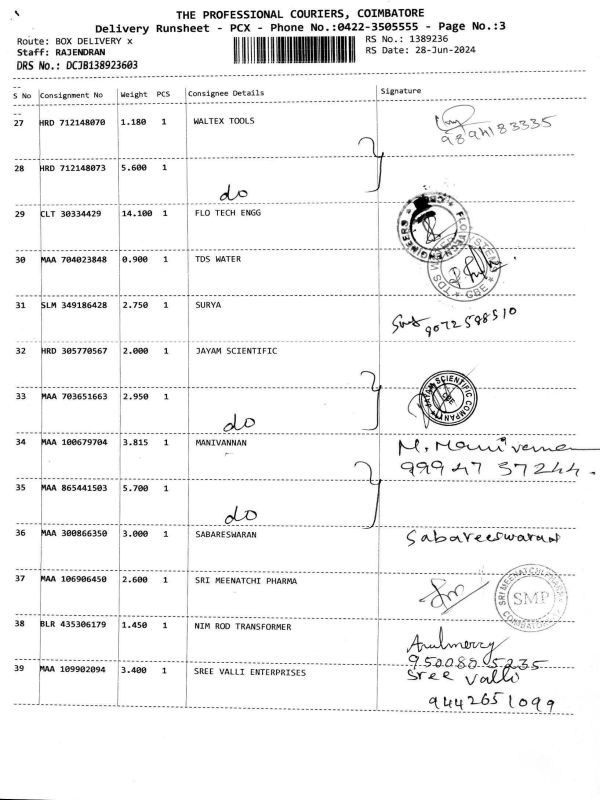 THE PROFESSIONAL COURIERS, COIMBATORE
Delivery Runsheet - PCX - Phone No.:0422-3505555 - Page No.:3
Route: BOX DELIVERY x RS No.: 1389236
Staff: RAJENDRAN RS Date: 28-Jun-2024
DRS No.: DCJB138923603
S No Consignment No Weight PCS Consignee Details Signature
27 HRD 712148070 1.180 1 WALTEX TOOLS
9894183335
28 HRD 712148073 5.600 1
do
29 CLT 30334429 14.100 1 FLO TECH ENGG
FLOTECH ENGINEERS
30 MAA 704023848 0.900 1 TDS WATER
TDS CBE
31 SLM 349186428 2.750 1 SURYA
9072598510
32 HRD 305770567 2.000 1 JAYAM SCIENTIFIC
33 MAA 703651663 2.950 1
JAYAM SCIENTIFIC COMPANY CBE
do
34 MAA 100679704 3.815 1 MANIVANNAN
M. Manivannan
99947 37244.
35 MAA 865441503 5.700 1
do
36 MAA 300866350 3.000 1 SABARESWARAN
Sabareeswaran
37 MAA 106906450 2.600 1 SRI MEENATCHI PHARMA
SRI MEENATCHI PHARMA SMP COIMBATORE
38 BLR 435306179 1.450 1 NIM ROD TRANSFORMER
Arulmercy
950080 5235
39 MAA 109902094 3.400 1 SREE VALLI ENTERPRISES
Sree Valli
9442651099